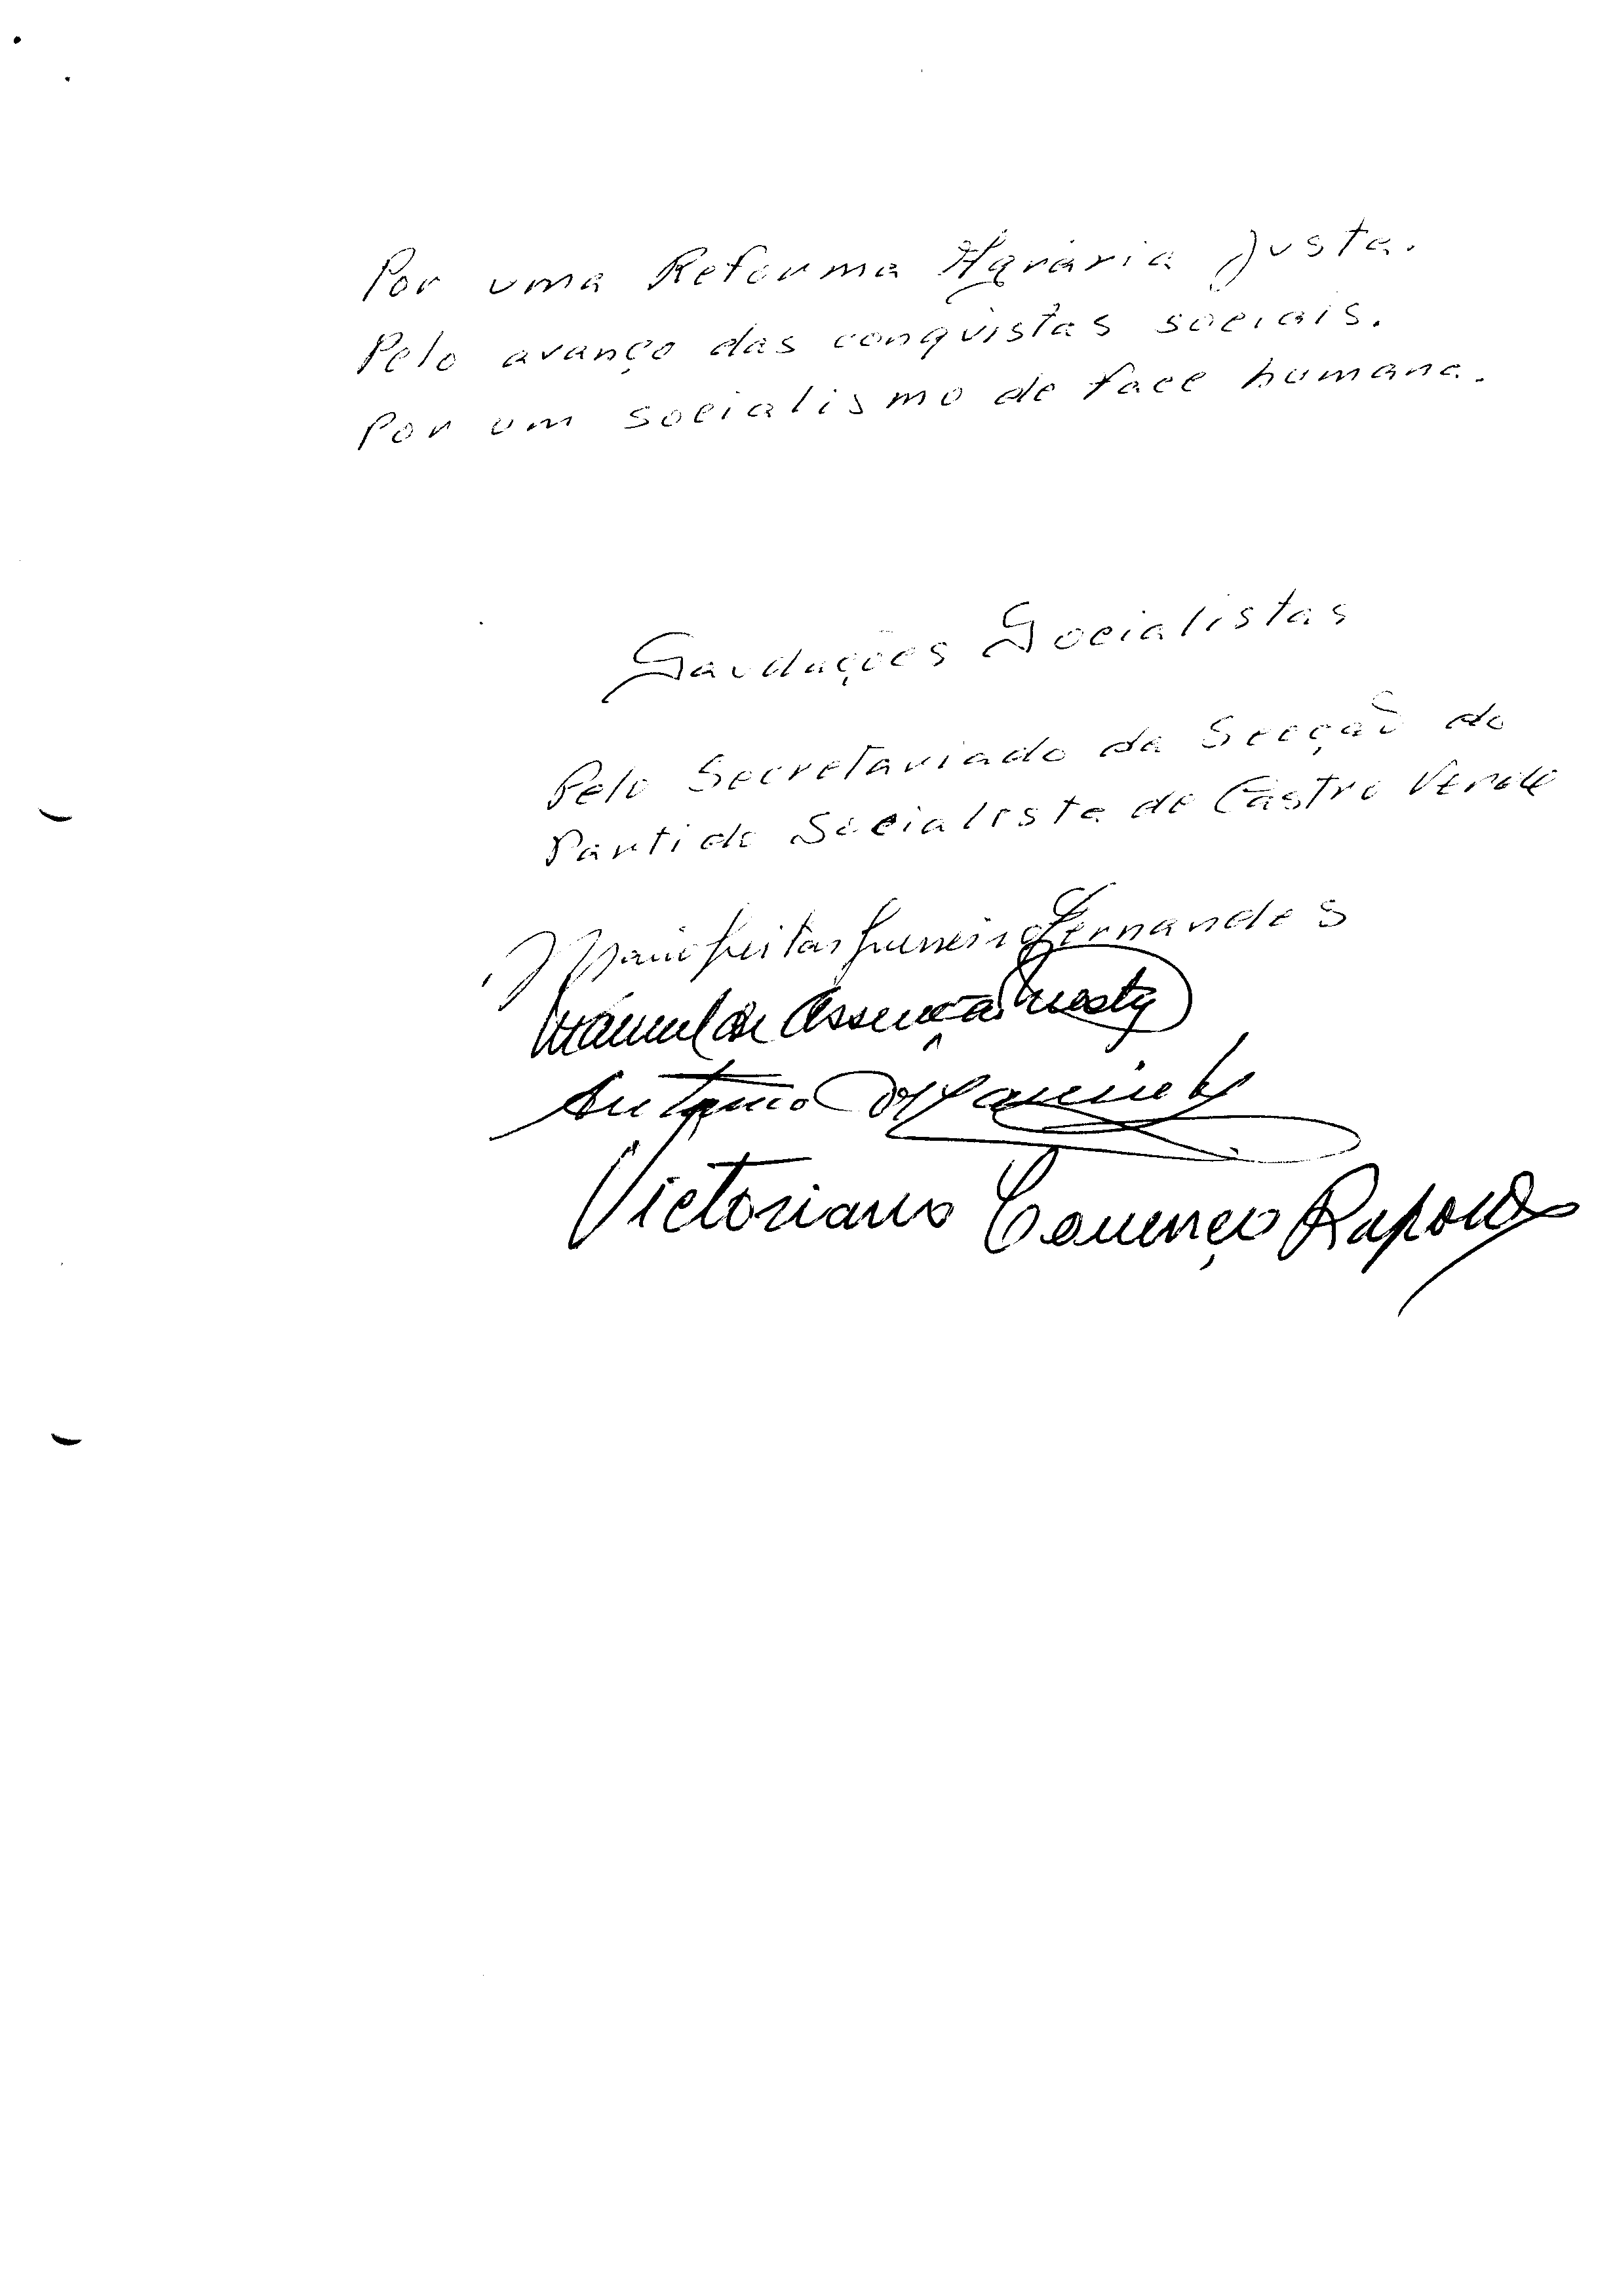 Por uma Reforma Agrária Justa.
Pelo avanço das conquistas sociais.
Por um socialismo de face humana.
Saudações Socialistas
Pelo Secretariado da Secção do
Partido Socialista de Castro Verde
Freitas Guerreiro Fernandes
Manuel de Assenção
António
Victoriano Lourenço Raposo